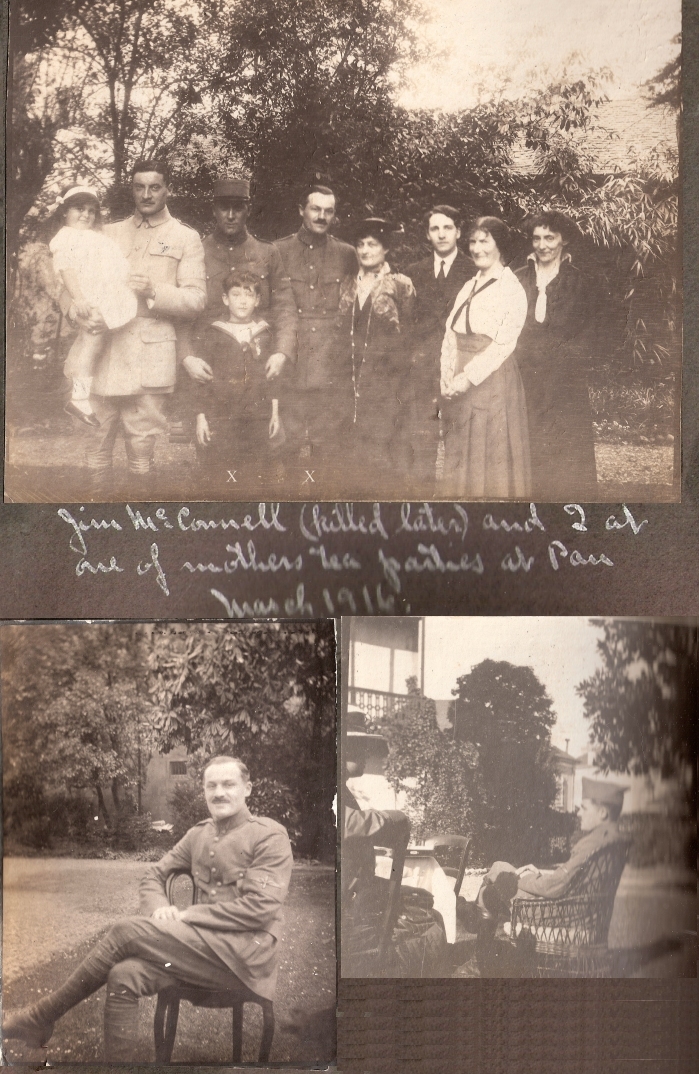 X X
Jim McConnell (killed later) and I at
one of mothers tea parties at Pau
March 1916.